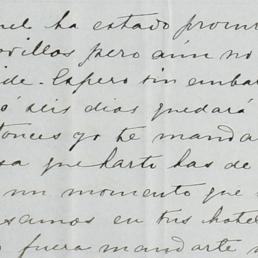 ha estado prome
pero aún no
ide. Espero sin embar
ó seis días quedará
tonces yo te mandar
sa que harti has de
un momento que
samos en tus hotel
fuera mandarte